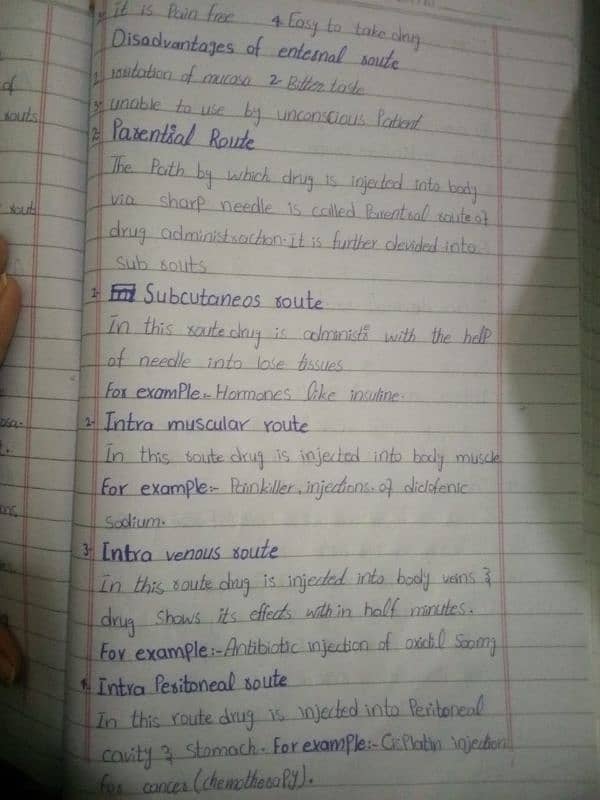 it is Pain free 4. Easy to take drug
Disadvantages of enteral route
1. irritation of mucosa 2- Bitter taste
3- unable to use by unconscious Patient
2- Parential Route
The Path by which drug is injected into body
via sharp needle is called Parentral route of
drug administraction. It is further devided into
sub routs
1- Subcutaneos route
In this route drug is administ with the help
of needle into lose tissues
For examPle:- Hormones like insuline.
2- Intra muscular route
In this route drug is injected into body muscle
For example:- Painkiller, injections. of diclofenic
Sodium.
3- Intra venous route
In this route drug is injected into body veins &
drug shows its effects with in half minutes.
For example:- Antibiotic injection of 500mg
Intra Peritoneal route
In this route drug is injected into Peritoneal
cavity & stomach. For example:- CisPlatin injection
For cancer (chemotheraPy).
of
routs
rout